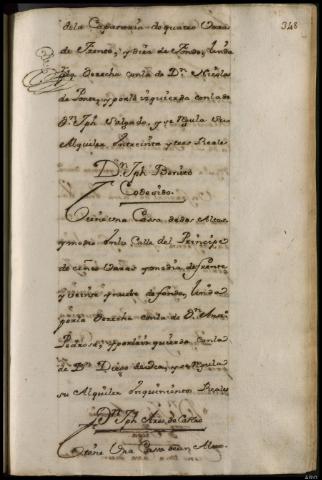 348
de la Caparania de quatro Varas
de Frente, y diez de Fondo, linda
por derecha con la de Dn. Nicolas
de Ponte, y por la izquierda con la de
Dn. Jph Salgado, y regula su
Alquiler en treinta y tres Reales
Dn. Jph Benito
Codesido.
tiene una Cassa de dos Altos
y medio en la Calle del Principe
de cinco Varas y media de frente
y veinte y nuebe de fondo, linda
por la derecha con la de Dn. Anto.
Pedrosa, y por la izquierda con la
de Dn. Diego de, y regula
su Alquiler en quinientos Reales
Dn. Jph Arias de Castro
tiene Una Cassa de un Alto